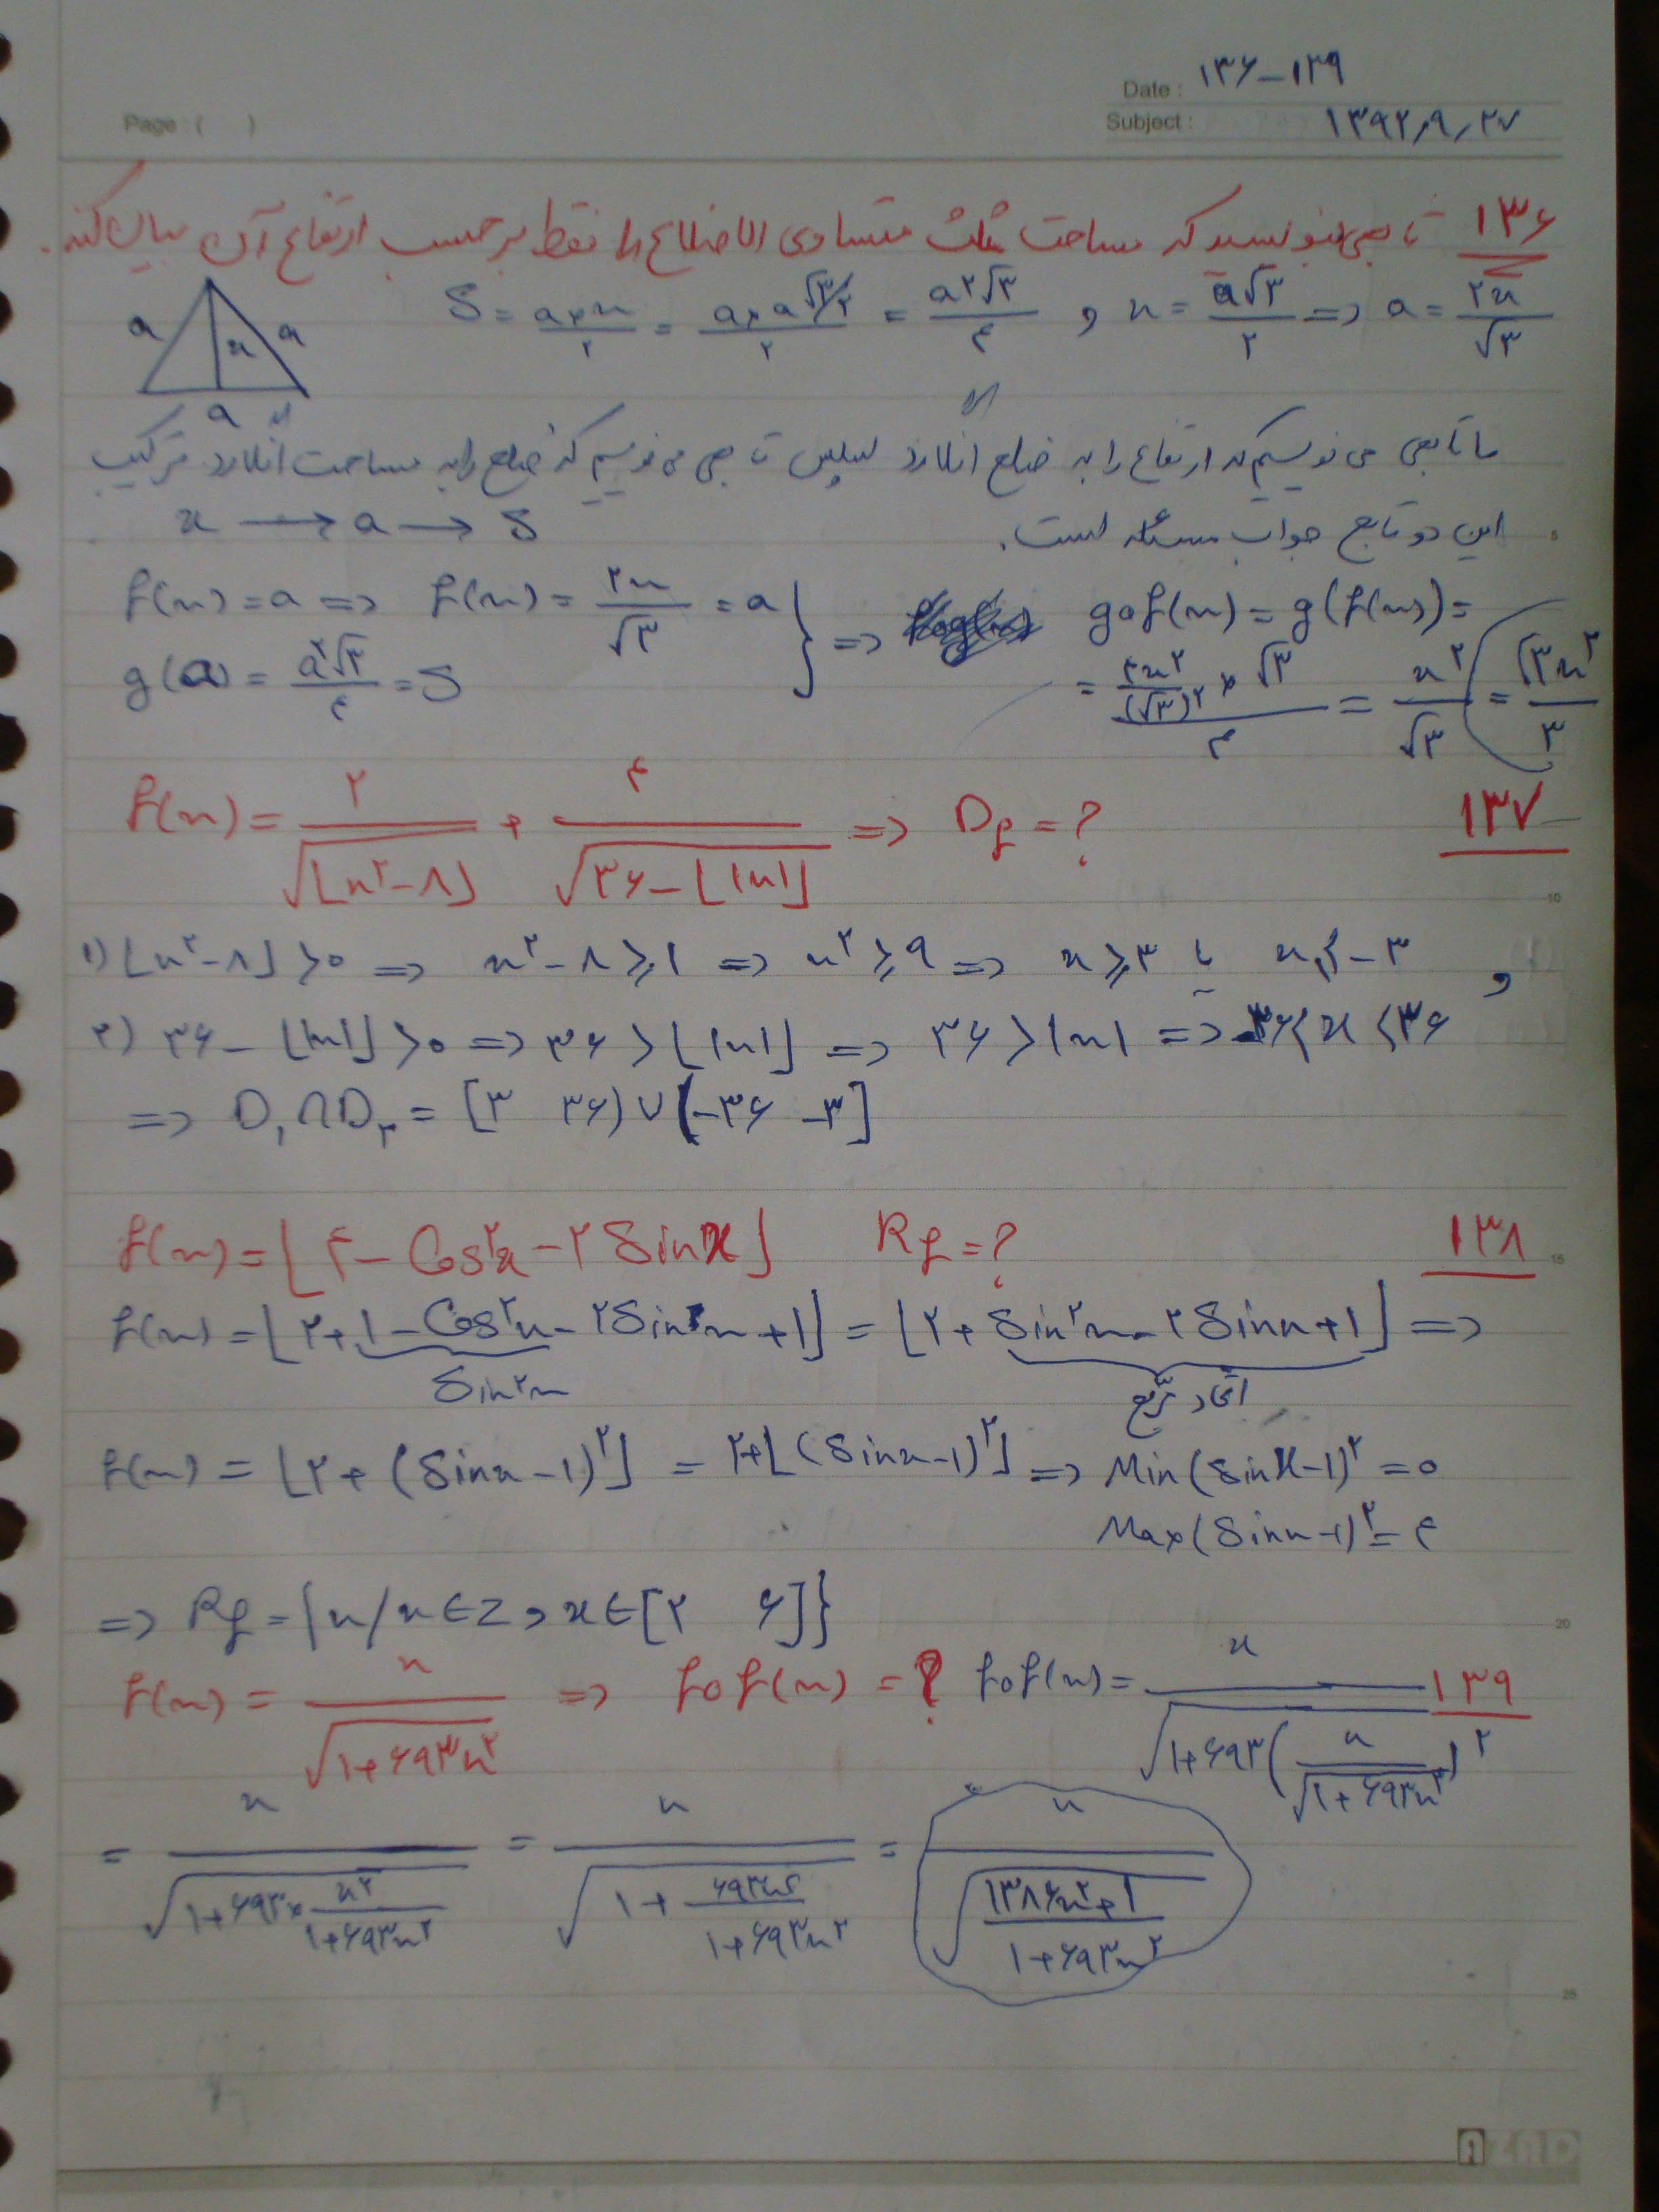 Date : ۱۳۶-۱۳۹
Page : ( )
Subject : ۱۳۹۲,۹,۲۷
۱۳۶ تابعی بنویسید که مساحت مثلث متساوی الاضلاع را فقط برحسب ارتفاع آن بیان کند.
S = a×x/۲ = a×a√۳/۲ / ۲ = a۲√۳/۴ , x = a√۳/۲ => a = ۲x/√۳
a x a
a
ما تابعی می نویسیم که ارتفاع را به ضلع اندازد سپس تابعی می نویسیم که ضلع را به مساحت اندازد ترکیب
این دو تابع جواب مسئله است.
x → a → S
f(x) = a => f(x) = ۲x/√۳ = a } => gof(x) = g(f(x)) =
g(a) = a۲√۳/۴ = S = ۴x۲/(√۳)۲ × √۳ / ۴ = x۲/√۳ = √۳x۲/۳
۱۳۷
f(x) = ۲/√⌊x۲-۸⌋ + ۴/√۳۶-⌊|x|⌋ => Df = ?
۱) ⌊x۲-۸⌋ > ۰ => x۲-۸ ≥ ۱ => x۲ ≥ ۹ => x ≥ ۳ یا x ≤ -۳ ,
۲) ۳۶-⌊|x|⌋ > ۰ => ۳۶ > ⌊|x|⌋ => ۳۶ > |x| => -۳۶ < x < ۳۶
=> D۱∩D۲ = [۳ ۳۶) ∪ (-۳۶ -۳]
۱۳۸
f(x) = ⌊۴ - Cos۲x - ۲Sinx⌋ Rf = ?
f(x) = ⌊۲+۱-Cos۲x-۲Sinx+۱⌋ = ⌊۲+Sin۲x-۲Sinx+۱⌋ =>
Sin۲x اتحاد مربع
f(x) = ⌊۲+(Sinx-۱)۲⌋ = ۲+⌊(Sinx-۱)۲⌋ => Min(Sinx-۱)۲ = ۰
Max(Sinx-۱)۲ = ۴
=> Rf = {x/x∈Z , x∈[۲ ۶]}
۱۳۹
f(x) = x/√۱+۶۹۳x۲ => fof(x) = ? fof(x) = x/√۱+۶۹۳(x/√۱+۶۹۳x۲)۲
= x/√۱+۶۹۳×x۲/۱+۶۹۳x۲ = x/√۱+۶۹۳x۲/۱+۶۹۳x۲ = x/√۱۳۸۶x۲+۱/۱+۶۹۳x۲
AZAD